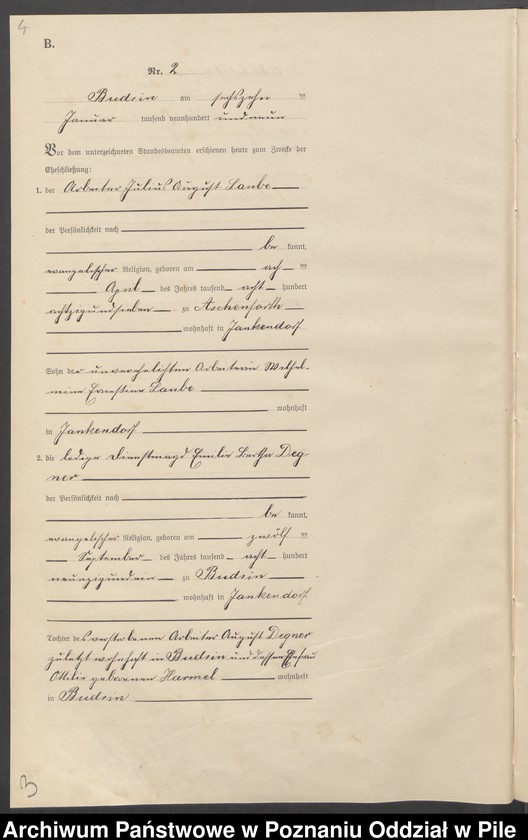 4
B.
Nr. 2
Budsin am sechszehn ten
Januar tausend neunhundert und neun
Vor dem unterzeichneten Standesbeamten erschienen heute zum Zwecke der
Eheschließung:
1. der Arbeiter Julius August Laube
der Persönlichkeit nach
be kannt,
evangelischer Religion, geboren am ach ten
April des Jahres tausend acht hundert
achtzigundsieben zu Aschenforth
wohnhaft in Jankendorf
Sohn der unverehelichten Arbeiterin Wilhel-
mine Ernestine Laube
wohnhaft
in Jankendorf
2. die ledige Dienstmagd Emilie Bertha Deg-
ner
der Persönlichkeit nach
be kannt,
evangelischer Religion, geboren am zwölf ten
September des Jahres tausend acht hundert
neunzigundein zu Budsin
wohnhaft in Jankendorf
Tochter des verstorbenen Arbeiter August Degner
zuletzt wohnhaft in Budsin und dessen Ehefrau
Ottilie geborenen Harmel wohnhaft
in Budsin
3
Archiwum Państwowe w Poznaniu Oddział w Pile